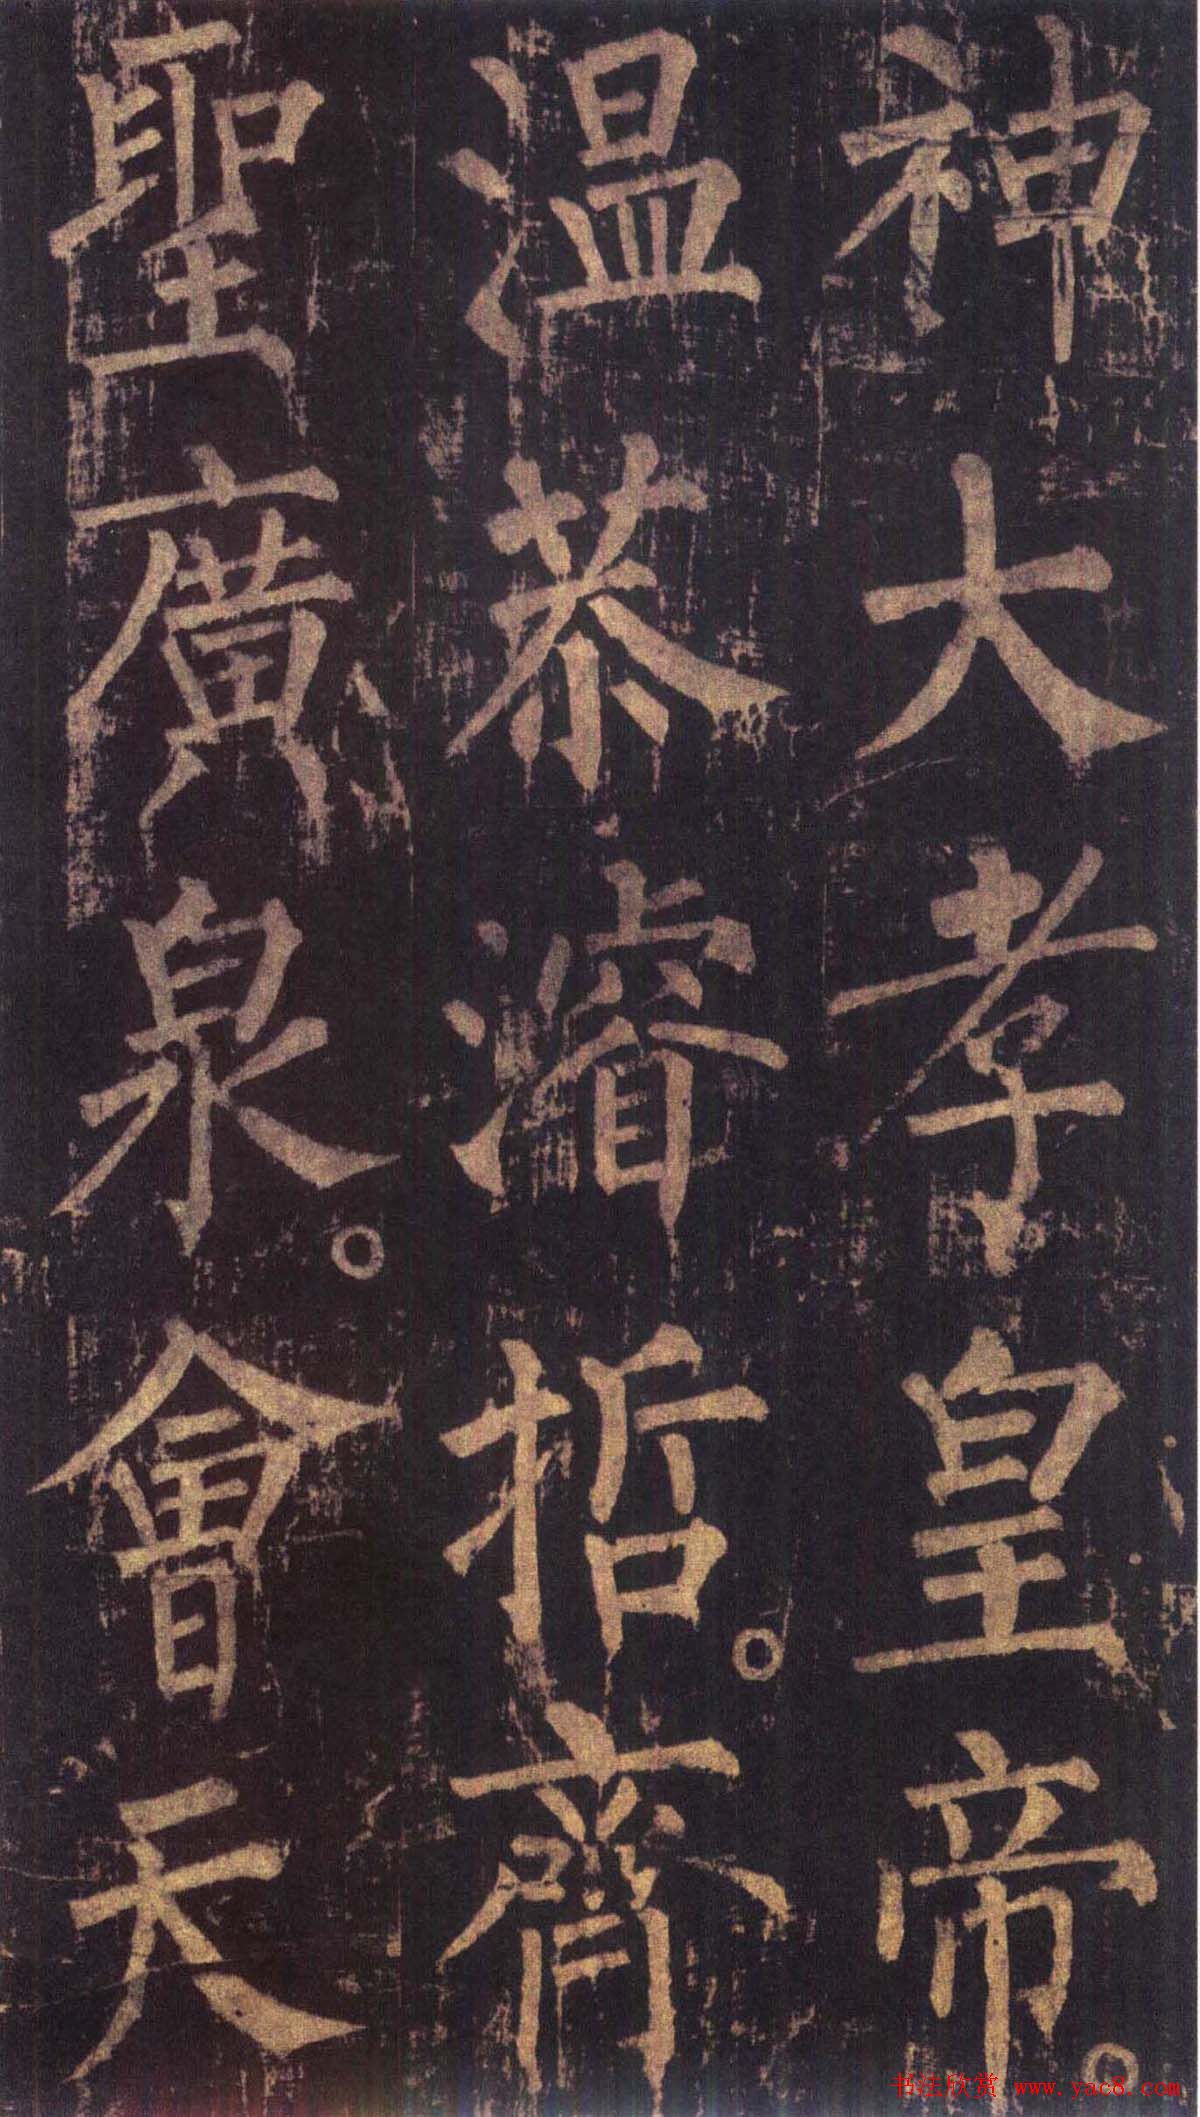 神大孝皇帝。
温恭濬哲。齊
聖廣泉。會天
书法欣赏 www.yac8.com